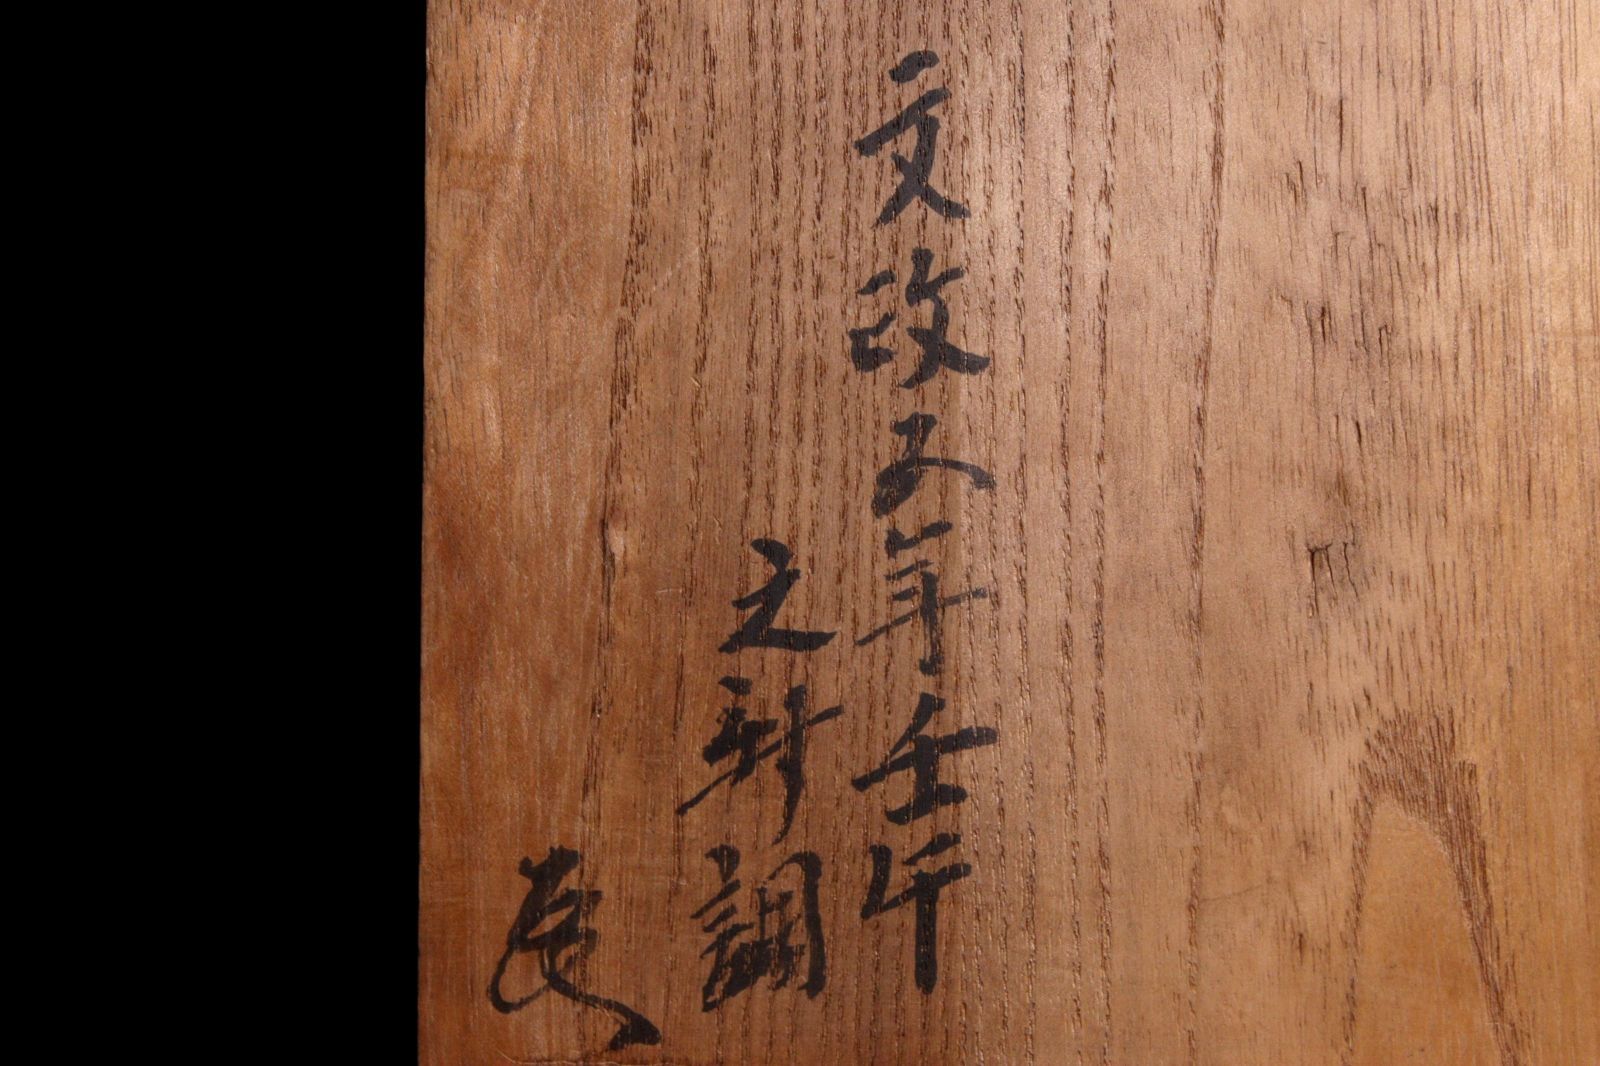 文政五年壬午
之新調